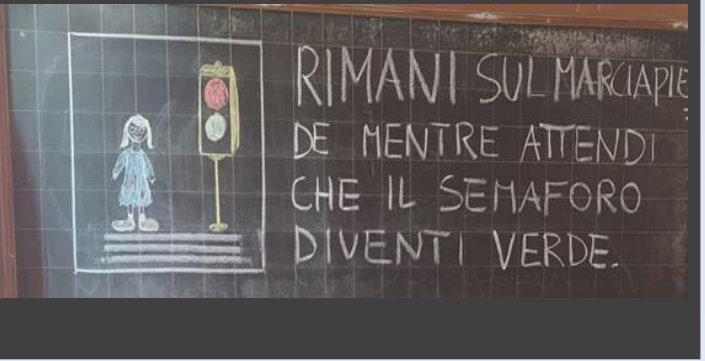 RIMANI SUL MARCIAPIE
DE MENTRE ATTENDI
CHE IL SEMAFORO
DIVENTI VERDE.